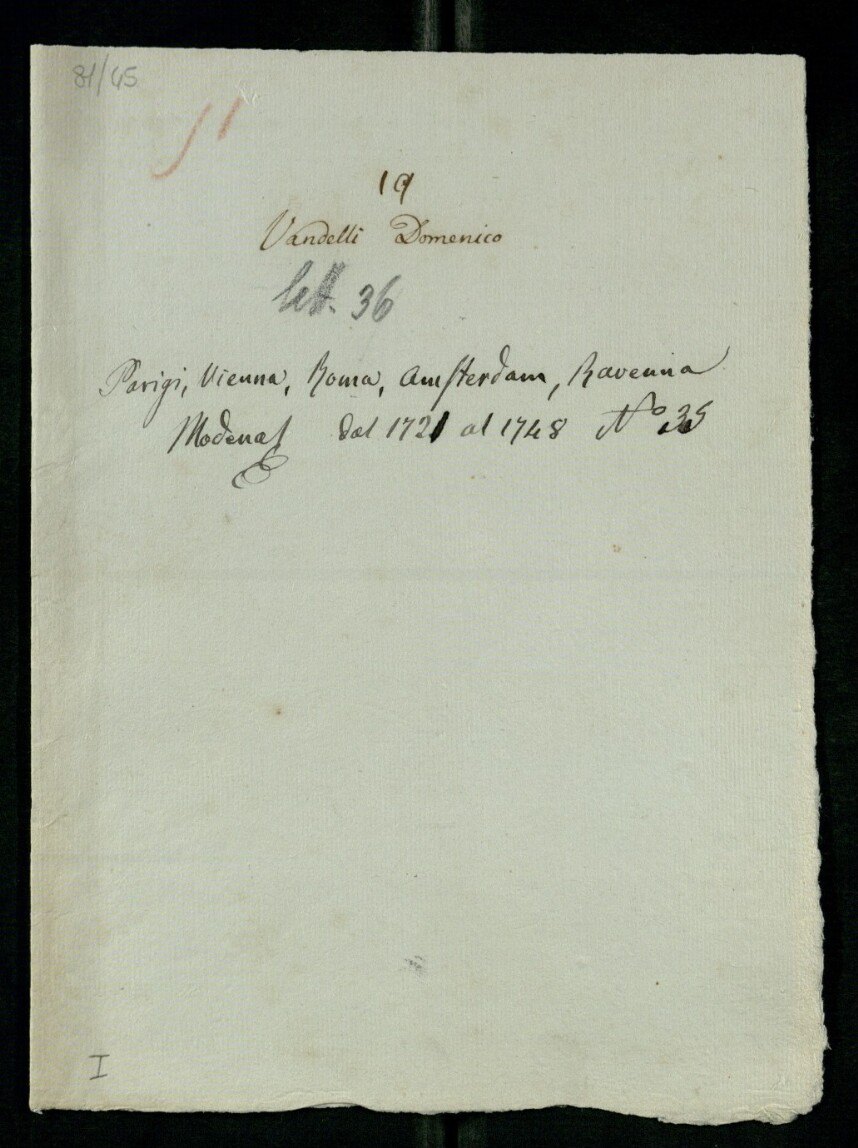 81/45
19
Vandelli Domenico
lett. 36
Parigi, Vienna, Roma, Amsterdam, Ravenna
Modena dal 1721 al 1748 No 35
I